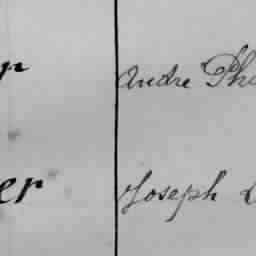 r Andre Ph
er Joseph